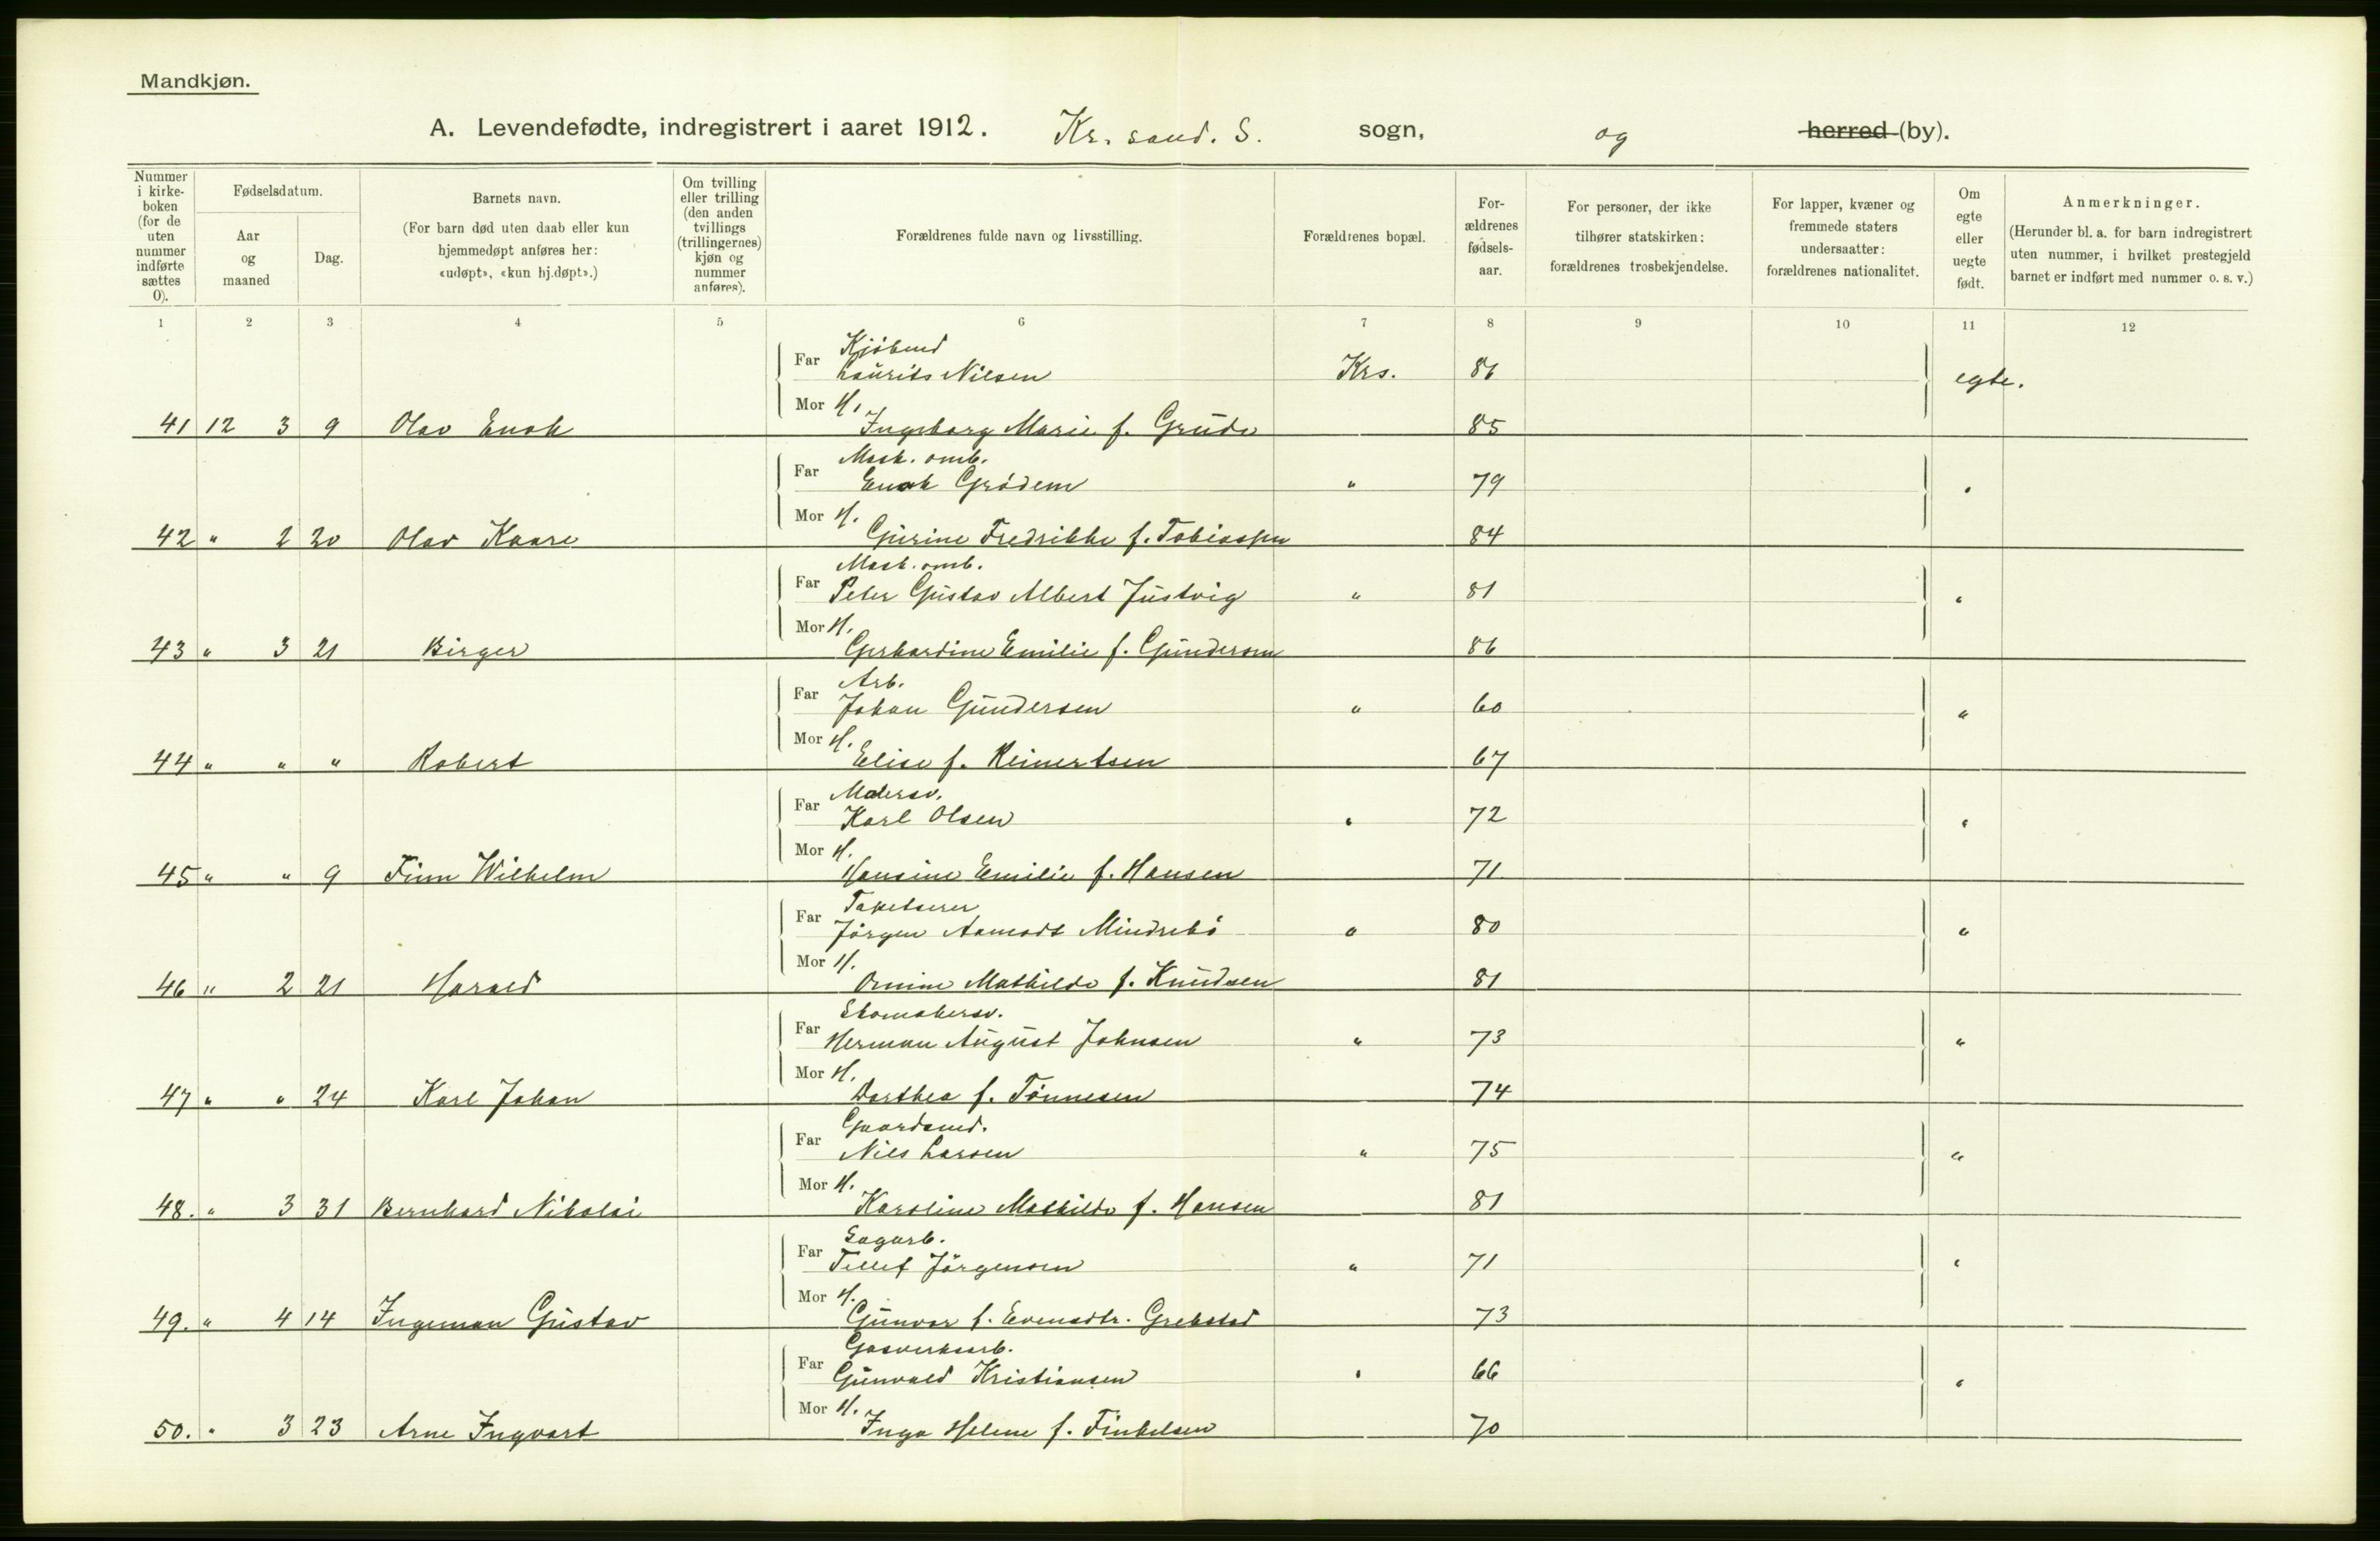 Mandkjøn.
A. Levendefødte, indregistrert i aaret 1912. Kr. sand. S. sogn, og herred (by).
Nummer i kirkeboken (for de uten nummer indførte sættes 0).
Fødselsdatum.
Aar og maaned
Dag.
Barnets navn.
(For barn død uten daab eller kun hjemmedøpt anføres her: «udøpt», «kun hj.døpt».)
Om tvilling eller trilling (den anden tvillings (trillingernes) kjøn og nummer anføres).
Forældrenes fulde navn og livsstilling.
Forældrenes bopæl.
Forældrenes fødselsaar.
For personer, der ikke tilhører statskirken: forældrenes trosbekjendelse.
For lapper, kvæner og fremmede staters undersaatter: forældrenes nationalitet.
Om egte eller uegte født.
Anmerkninger.
(Herunder bl. a. for barn indregistrert uten nummer, i hvilket prestegjeld barnet er indført med nummer o. s. v.)
1 2 3 4 5 6 7 8 9 10 11 12
Kjöbmd
Far Laurits Nilsen Krs. 86 egte.
Mor H.
41 12 3 9 Olav Enok Ingeborg Marie f. Grude 85
Mask. omb.
Far Enok Grödem " 79 "
Mor H.
42 " 2 20 Olav Kaare Gurine Fredrikke f. Tobiassen 84
Mask. omb.
Far Peter Gustav Albert Justvig " 81 "
Mor H.
43 " 3 21 Birger Gerhardine Emilie f. Gundersen 86
Arb.
Far Johan Gundersen " 60 "
Mor H.
44 " " " Robert Elise f. Reinertsen 67
Malersv.
Far Karl Olsen " 72 "
Mor H.
45 " " 9 Finn Wilhelm Hansine Emilie f. Hansen 71
Tapetserer
Far Jörgen Aamodt Mindrebö " 80 "
Mor H.
46 " 2 21 Harald Ornine Mathilde f. Knudsen 81
Skomakersv.
Far Herman August Johnsen " 73 "
Mor H.
47 " " 24 Karl Johan Dorthea f. Tönnesen 74
Gaardsmd.
Far Nils Larsen " 75 "
Mor H.
48. " 3 31 Bernhard Nikolai Karoline Mathilde f. Hansen 81
Sagarb.
Far Tellef Jörgensen " 71 "
Mor H.
49. " 4 14 Ingeman Gustav Gunvor f. Evensdtr. Grebstad 73
Gasverksarb.
Far Gunvald Kristiansen " 66 "
Mor H.
50. " 3 23 Arne Ingvart Inga Helene f. Finkelsen 70